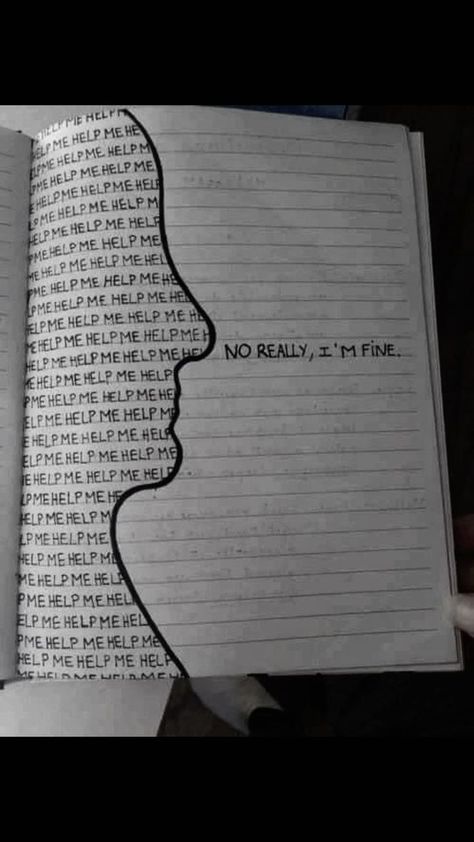 HELP ME HELP M
ELP ME HELP ME HE
LPME HELP ME HELP M
PME HELP ME HELP ME
E HELP ME HELP ME HELP
HELP ME HELP ME HELP M
HELP ME HELP ME HELP
PME HELP ME HELP ME
ME HELP ME HELP ME HEL
ME HELP ME HELP ME HE
LPME HELP ME HELP ME HEL
ELP ME HELP ME HELP ME HE
ME HELP ME HELP ME HELP ME H
HELP ME HELP ME HELP ME HEL NO REALLY, I'M FINE.
ME HELP ME HELP ME HELP
PME HELP ME HELP ME HE
ELP ME HELP ME HELP M
E HELP ME HELP ME HELP
ELP ME HELP ME HELP ME
E HELP ME HELP ME HELP
LPME HELP ME HE
HELP ME HELP M
LP ME HELP ME
HELP ME HELP M
ME HELP ME HELP
PME HELP ME HELP
ELP ME HELP ME HEL
PME HELP ME HELP ME
HELP ME HELP ME HELP
ME HELP ME HELP ME H